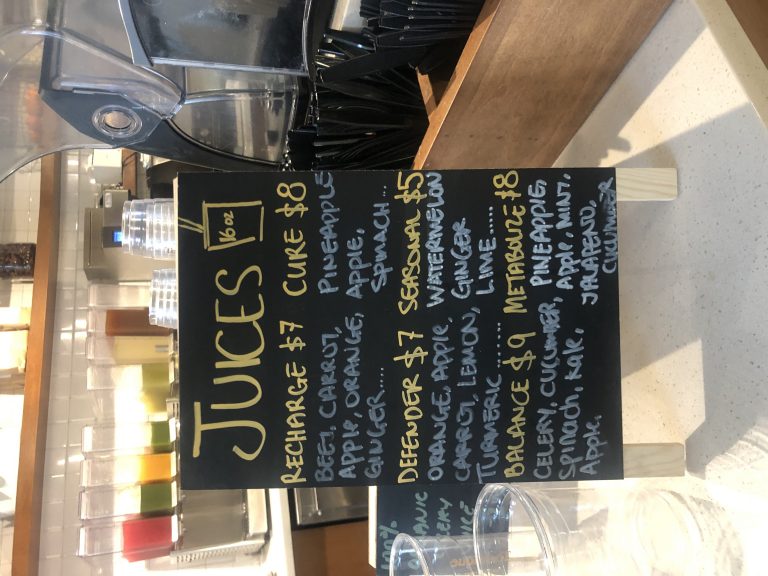 JUICES
16 oz
RECHARGE $7
BEET, CARROT,
Apple, ORANGE,
GINGER....
CURE $8
PINEAPPLE
APPLE,
SPINACH...
DEFENDER $7
ORANGE, APPLE,
CARROT, LEMON,
TURMERIC ......
SEASONAL $5
WATERMELON
GINGER
LIME .....
BALANCE $9
CELERY, CUCUMBER,
Spinach, Kale,
Apple.
METABOLIZE $8
PINEAPPLE,
Apple, MINT,
JALAPENO,
CUCUMBER
100%